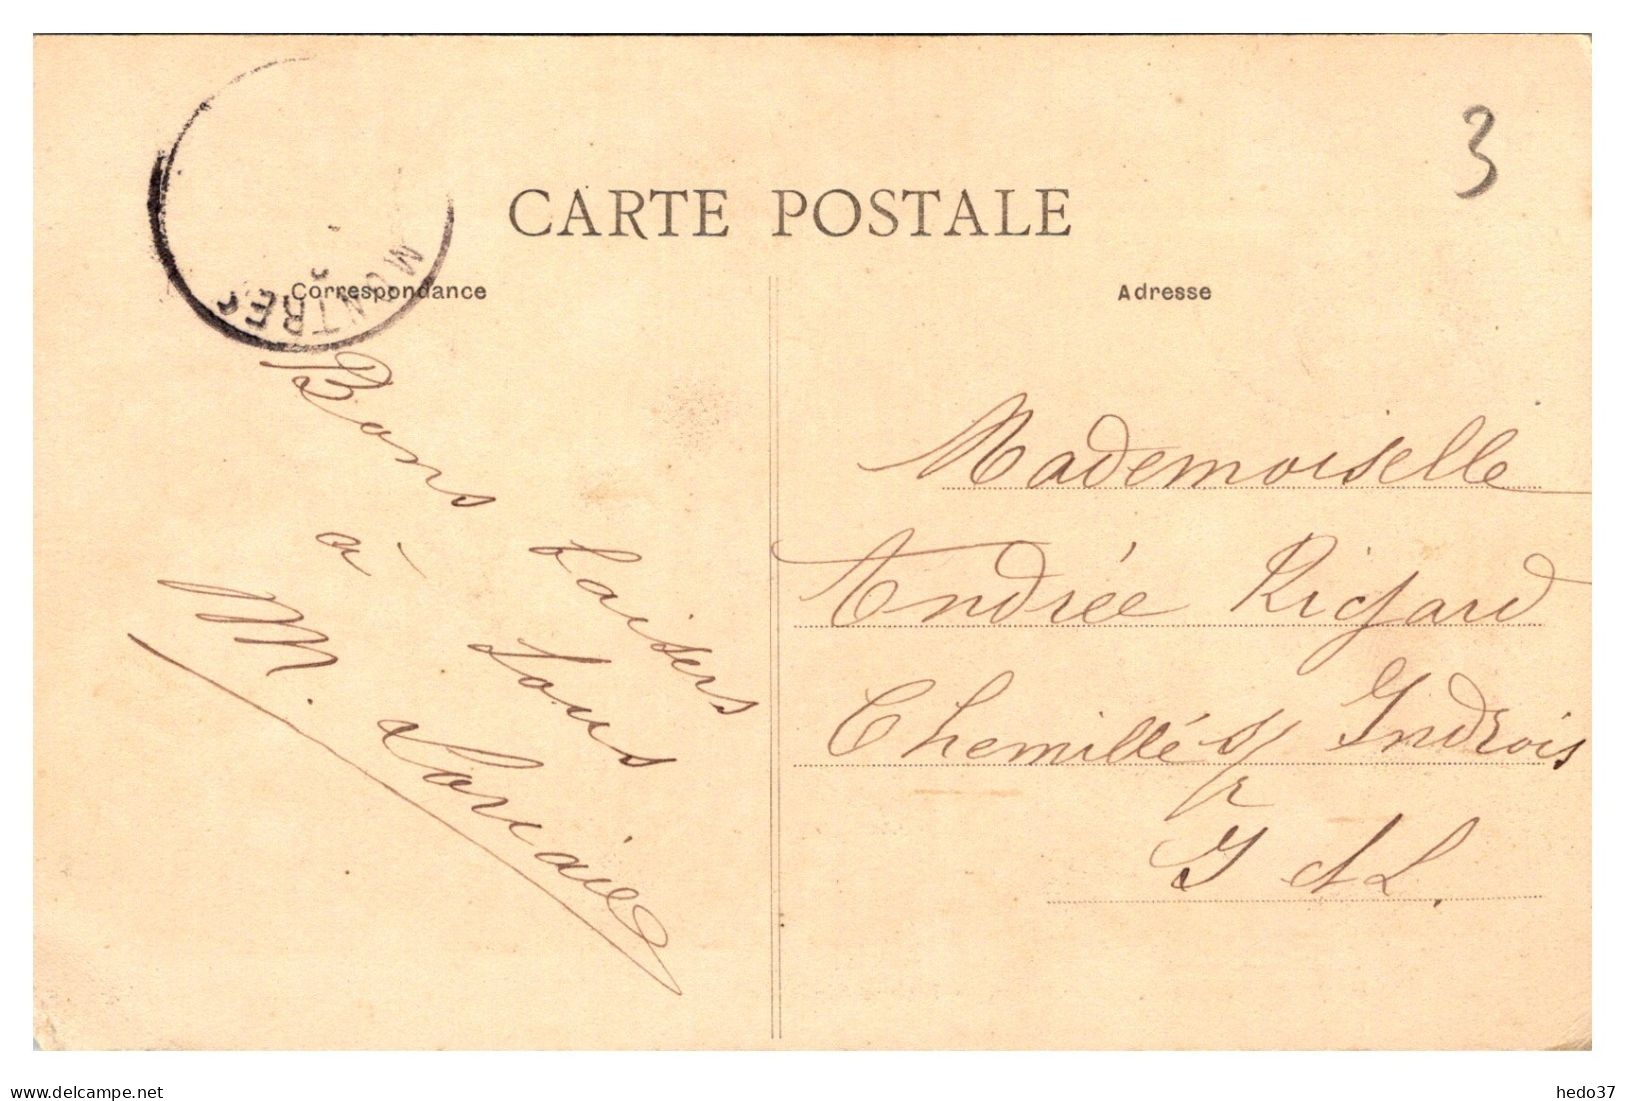 3
CARTE POSTALE
Correspondance
Adresse
MONTRES
Bons baisers
à tous
M.
Mademoiselle
Andrée Rigard
Chemillé s/ Indrois
I et L.
delcampe.net
hedo37